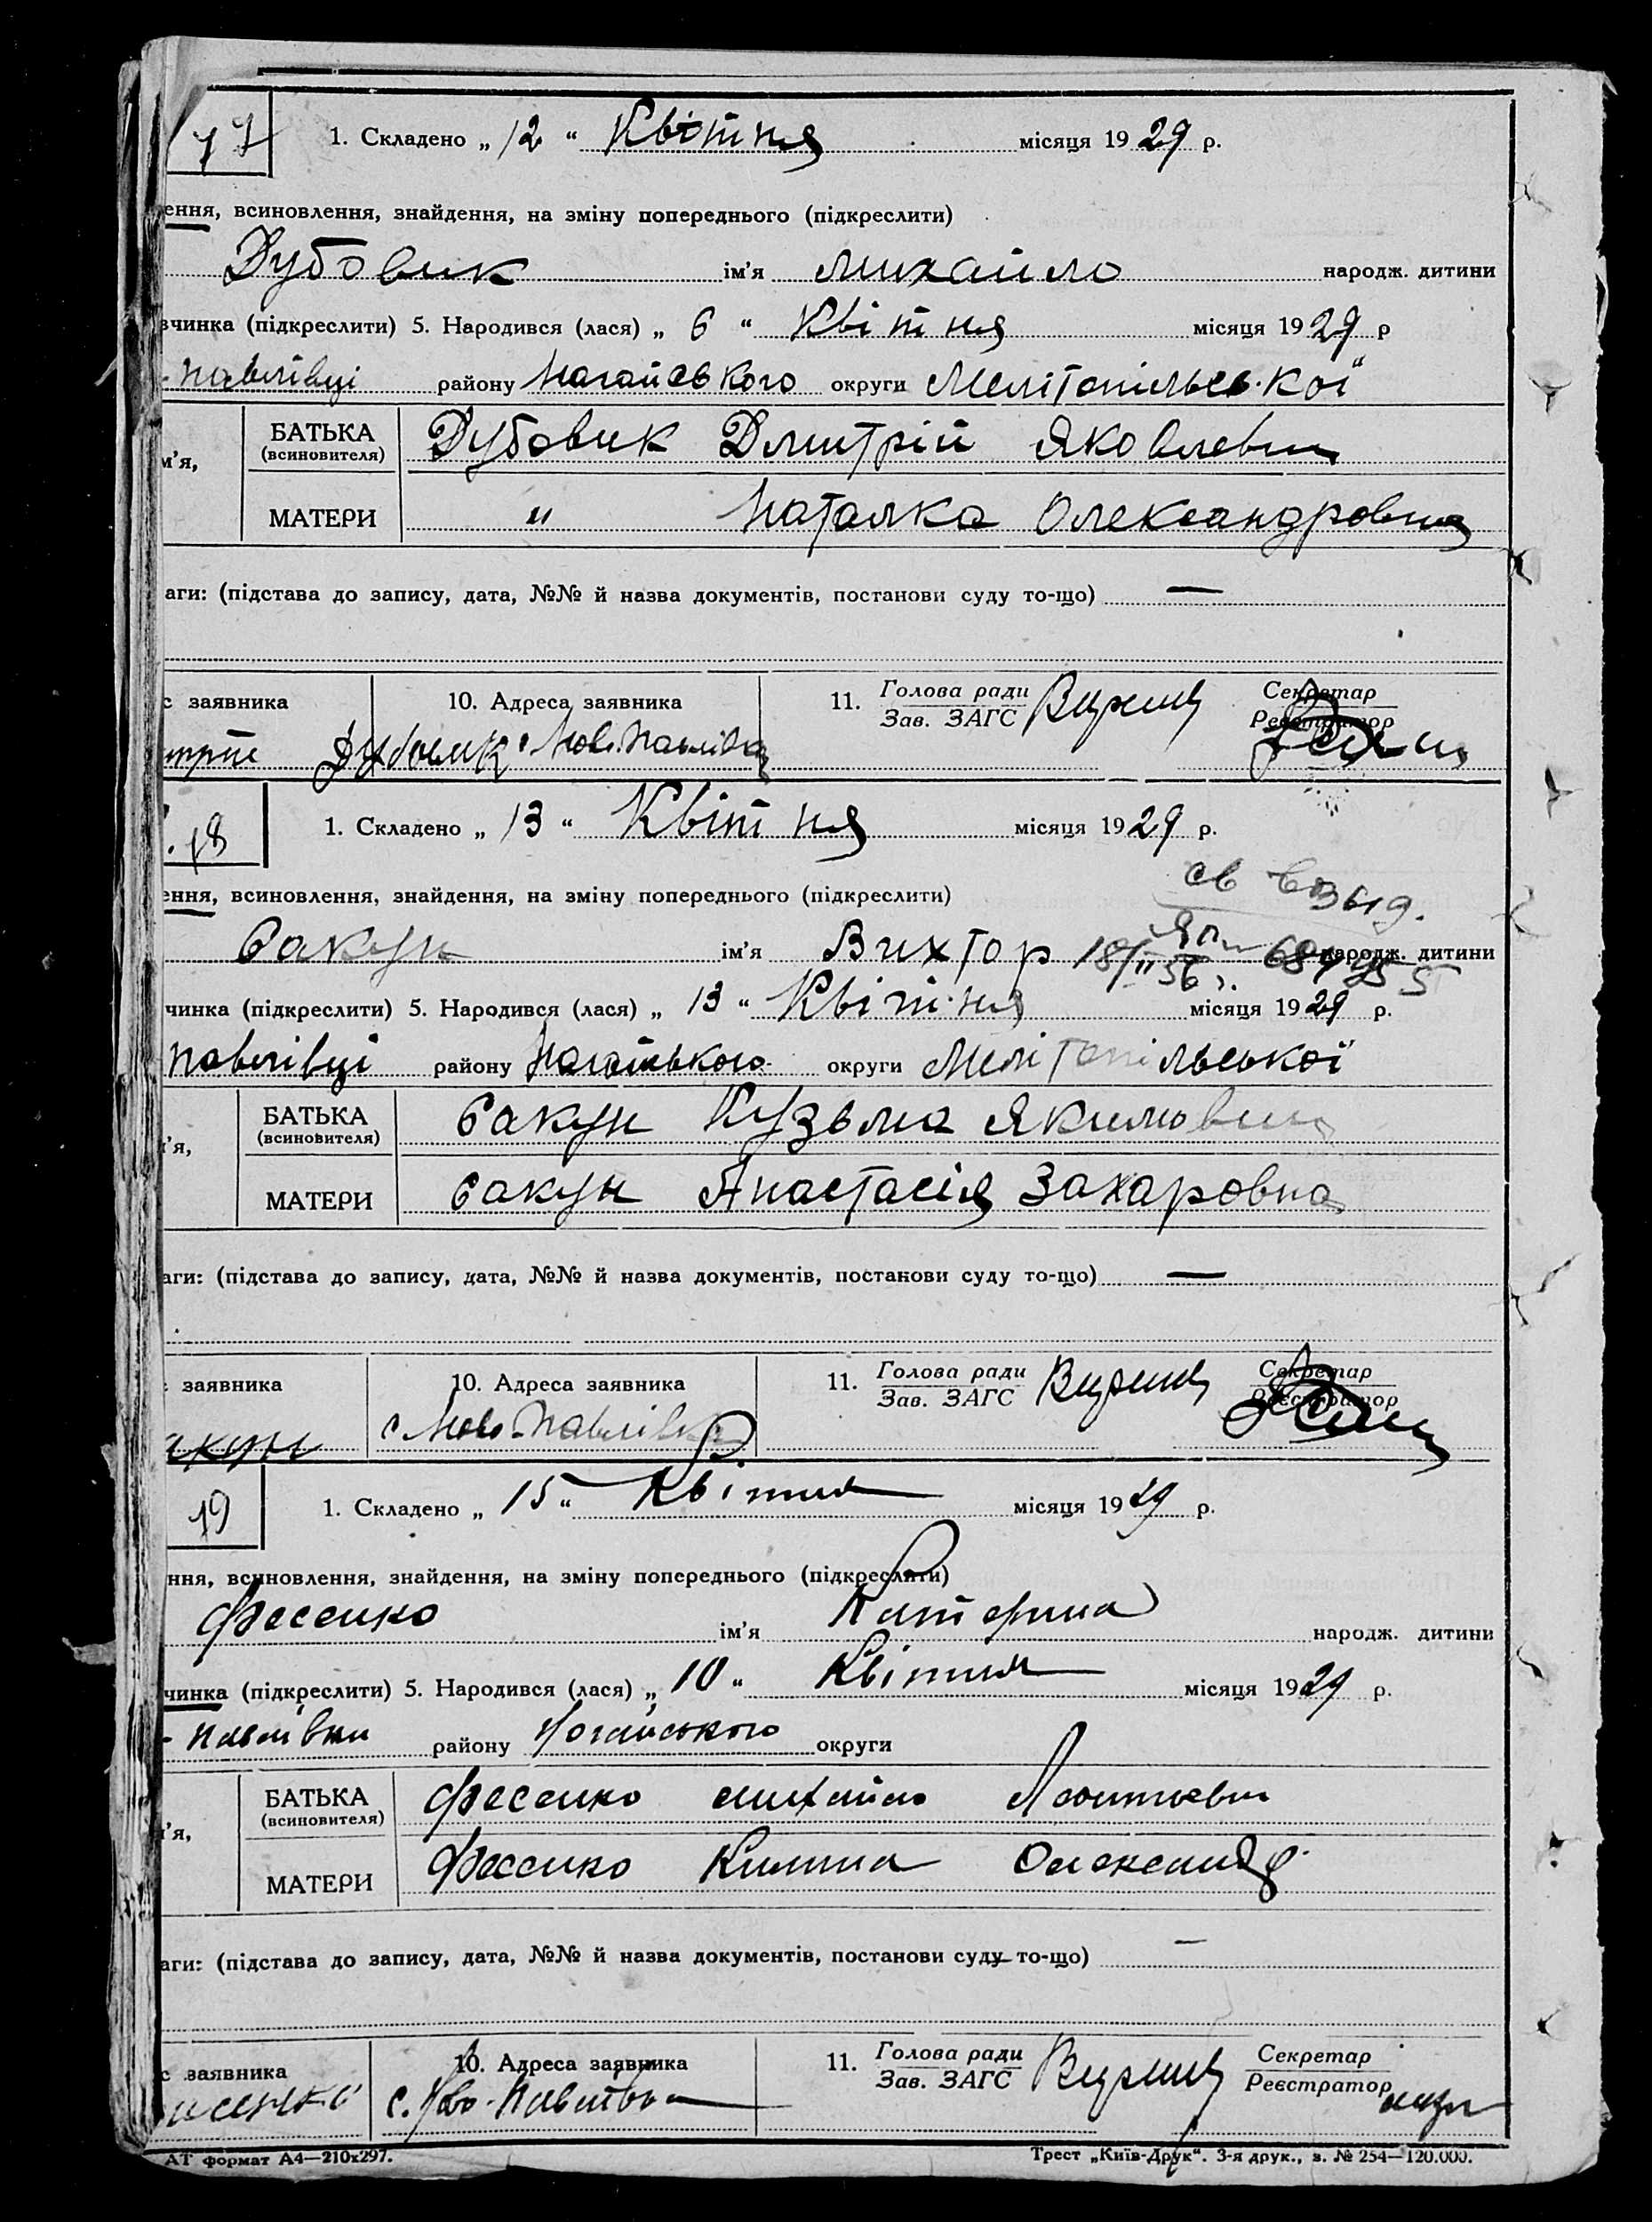 17 1. Складено „ 12 “ Квітня місяця 1929 р.
ення, всиновлення, знайдення, на зміну попереднього (підкреслити)
Дубовик ім'я Михайло народж. дитини
вчинка (підкреслити) 5. Народився (лася) „ 6 “ Квітня місяця 1929 р
- Павлівці району Нагайського округи Мелітопільської
м'я, БАТЬКА (всиновителя) Дубовик Дмитрій Яковлевич
МАТЕРИ " Наталка Олександровна
аги: (підстава до запису, дата, №№ й назва документів, постанови суду то-що) —
с заявника 10. Адреса заявника 11. Голова ради Зав. ЗАГС Секретар Реєстратор
Дубовик с Ново Павлівка
18 1. Складено „ 13 “ Квітня місяця 1929 р.
ення, всиновлення, знайдення, на зміну попереднього (підкреслити)
Сакун ім'я Вихтор народж. дитини
18/II 56 г.
чинка (підкреслити) 5. Народився (лася) „ 13 “ Квітня місяця 1929 р.
Павлівці району Нагайського округи Мелітопільської
'я, БАТЬКА (всиновителя) Сакун Кузьма Якимович
МАТЕРИ Сакун Анастасія Захаровна
аги: (підстава до запису, дата, №№ й назва документів, постанови суду то-що) —
заявника 10. Адреса заявника 11. Голова ради Зав. ЗАГС Секретар Реєстратор
акун с Ново-Павлівка
19 1. Складено „ 15 “ Квітня місяця 1929 р.
ння, всиновлення, знайдення, на зміну попереднього (підкреслити)
Фесенко ім'я Катерина народж. дитини
чинка (підкреслити) 5. Народився (лася) „ 10 “ Квітня місяця 1929 р.
- Павлівки району Ногайського округи
'я, БАТЬКА (всиновителя) Фесенко Михайло Леонтьевич
МАТЕРИ Фесенко Килина Олександр.
аги: (підстава до запису, дата, №№ й назва документів, постанови суду то-що) —
с заявника 10. Адреса заявника 11. Голова ради Зав. ЗАГС Секретар Реєстратор
есенко с. Ново-Павлівка
АТ формат А4—210х297. Трест „Київ-Друк“. 3-я друк., з. № 254—120.000.